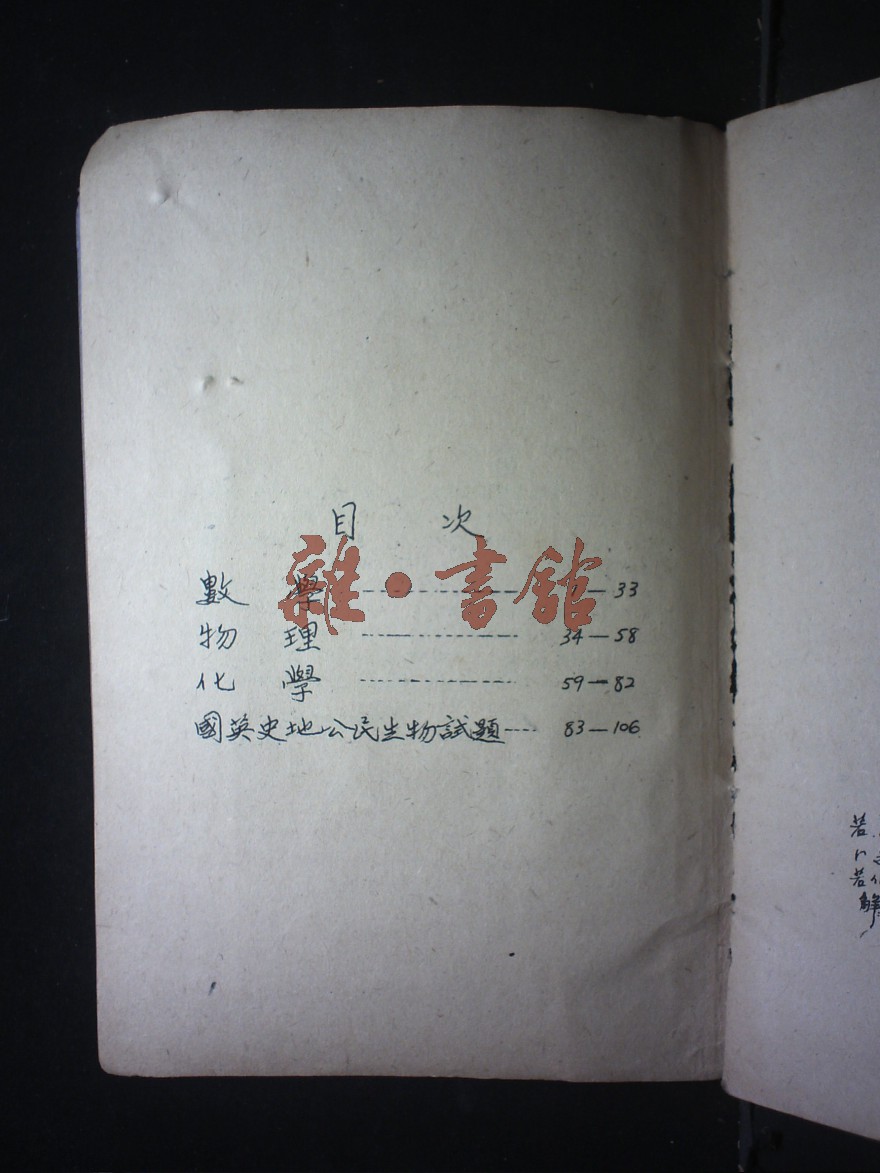 目 次
雜·書館
數 學 ---------- — 33
物 理 ---------- 34 — 58
化 學 ---------- 59 — 82
國英史地公民生物試題 ---- 83 — 106
若
若
解